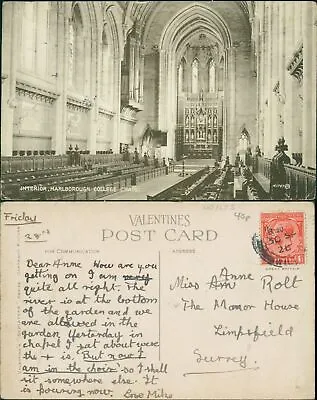 INTERIOR, MARLBOROUGH COLLEGE CHAPEL
Friday
28th
WILTS
40p
VALENTINES
POST CARD
FOR COMMUNICATION
ADDRESS
Dear Anne How are you
getting on I am
quite all right. The
river is at the bottom
of the garden and we
are allowed in the
garden Yesterday in
chapel I sat about were
the + is. But now I
am in the choir so I shall
sit somewhere else. It
is pouring now. Love Mike
Anne
Miss Ann Rolt
The Manor House
Limpsfield
Surrey.